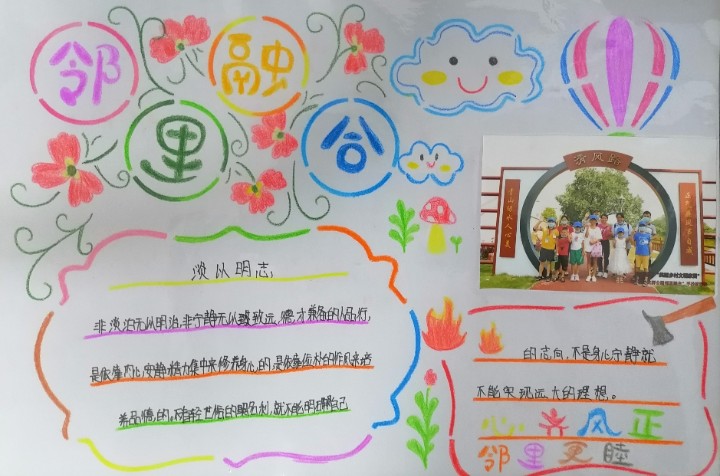 邻 融
里 合
淡以明志
非淡泊无以明治,非宁静无以致远。德才兼备的人品,
是依靠内心安静精力集中来修养身心的,是依靠俭朴的作风来培
养品德的。不看轻世俗的名利,就不能明自己
的志向,不是身心宁静就
不能实现远大的理想。
心齐风正
邻里更睦